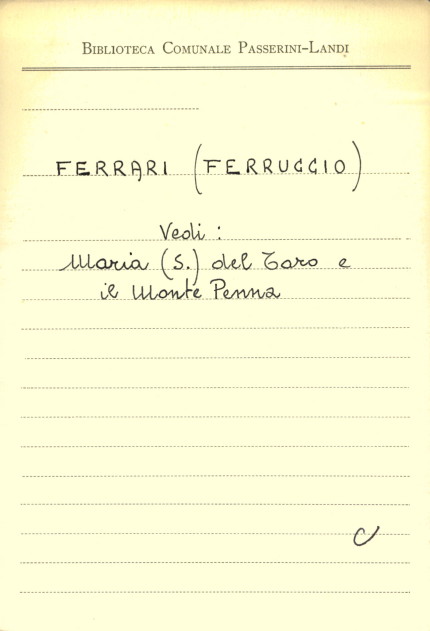 Biblioteca Comunale Passerini-Landi
FERRARI (FERRUCCIO)
Vedi:
Maria (S.) del Taro e
il Monte Penna
C